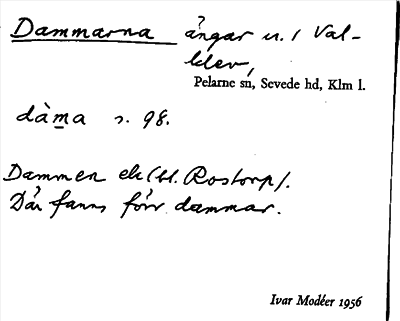 Dammarna ängar u. / Val-
klev,
Pelarne sn, Sevede hd, Klm l.
dàma s. 98.
Dammen el. (bl. Rostorp).
Där fanns förr dammar.
Ivar Modéer 1956